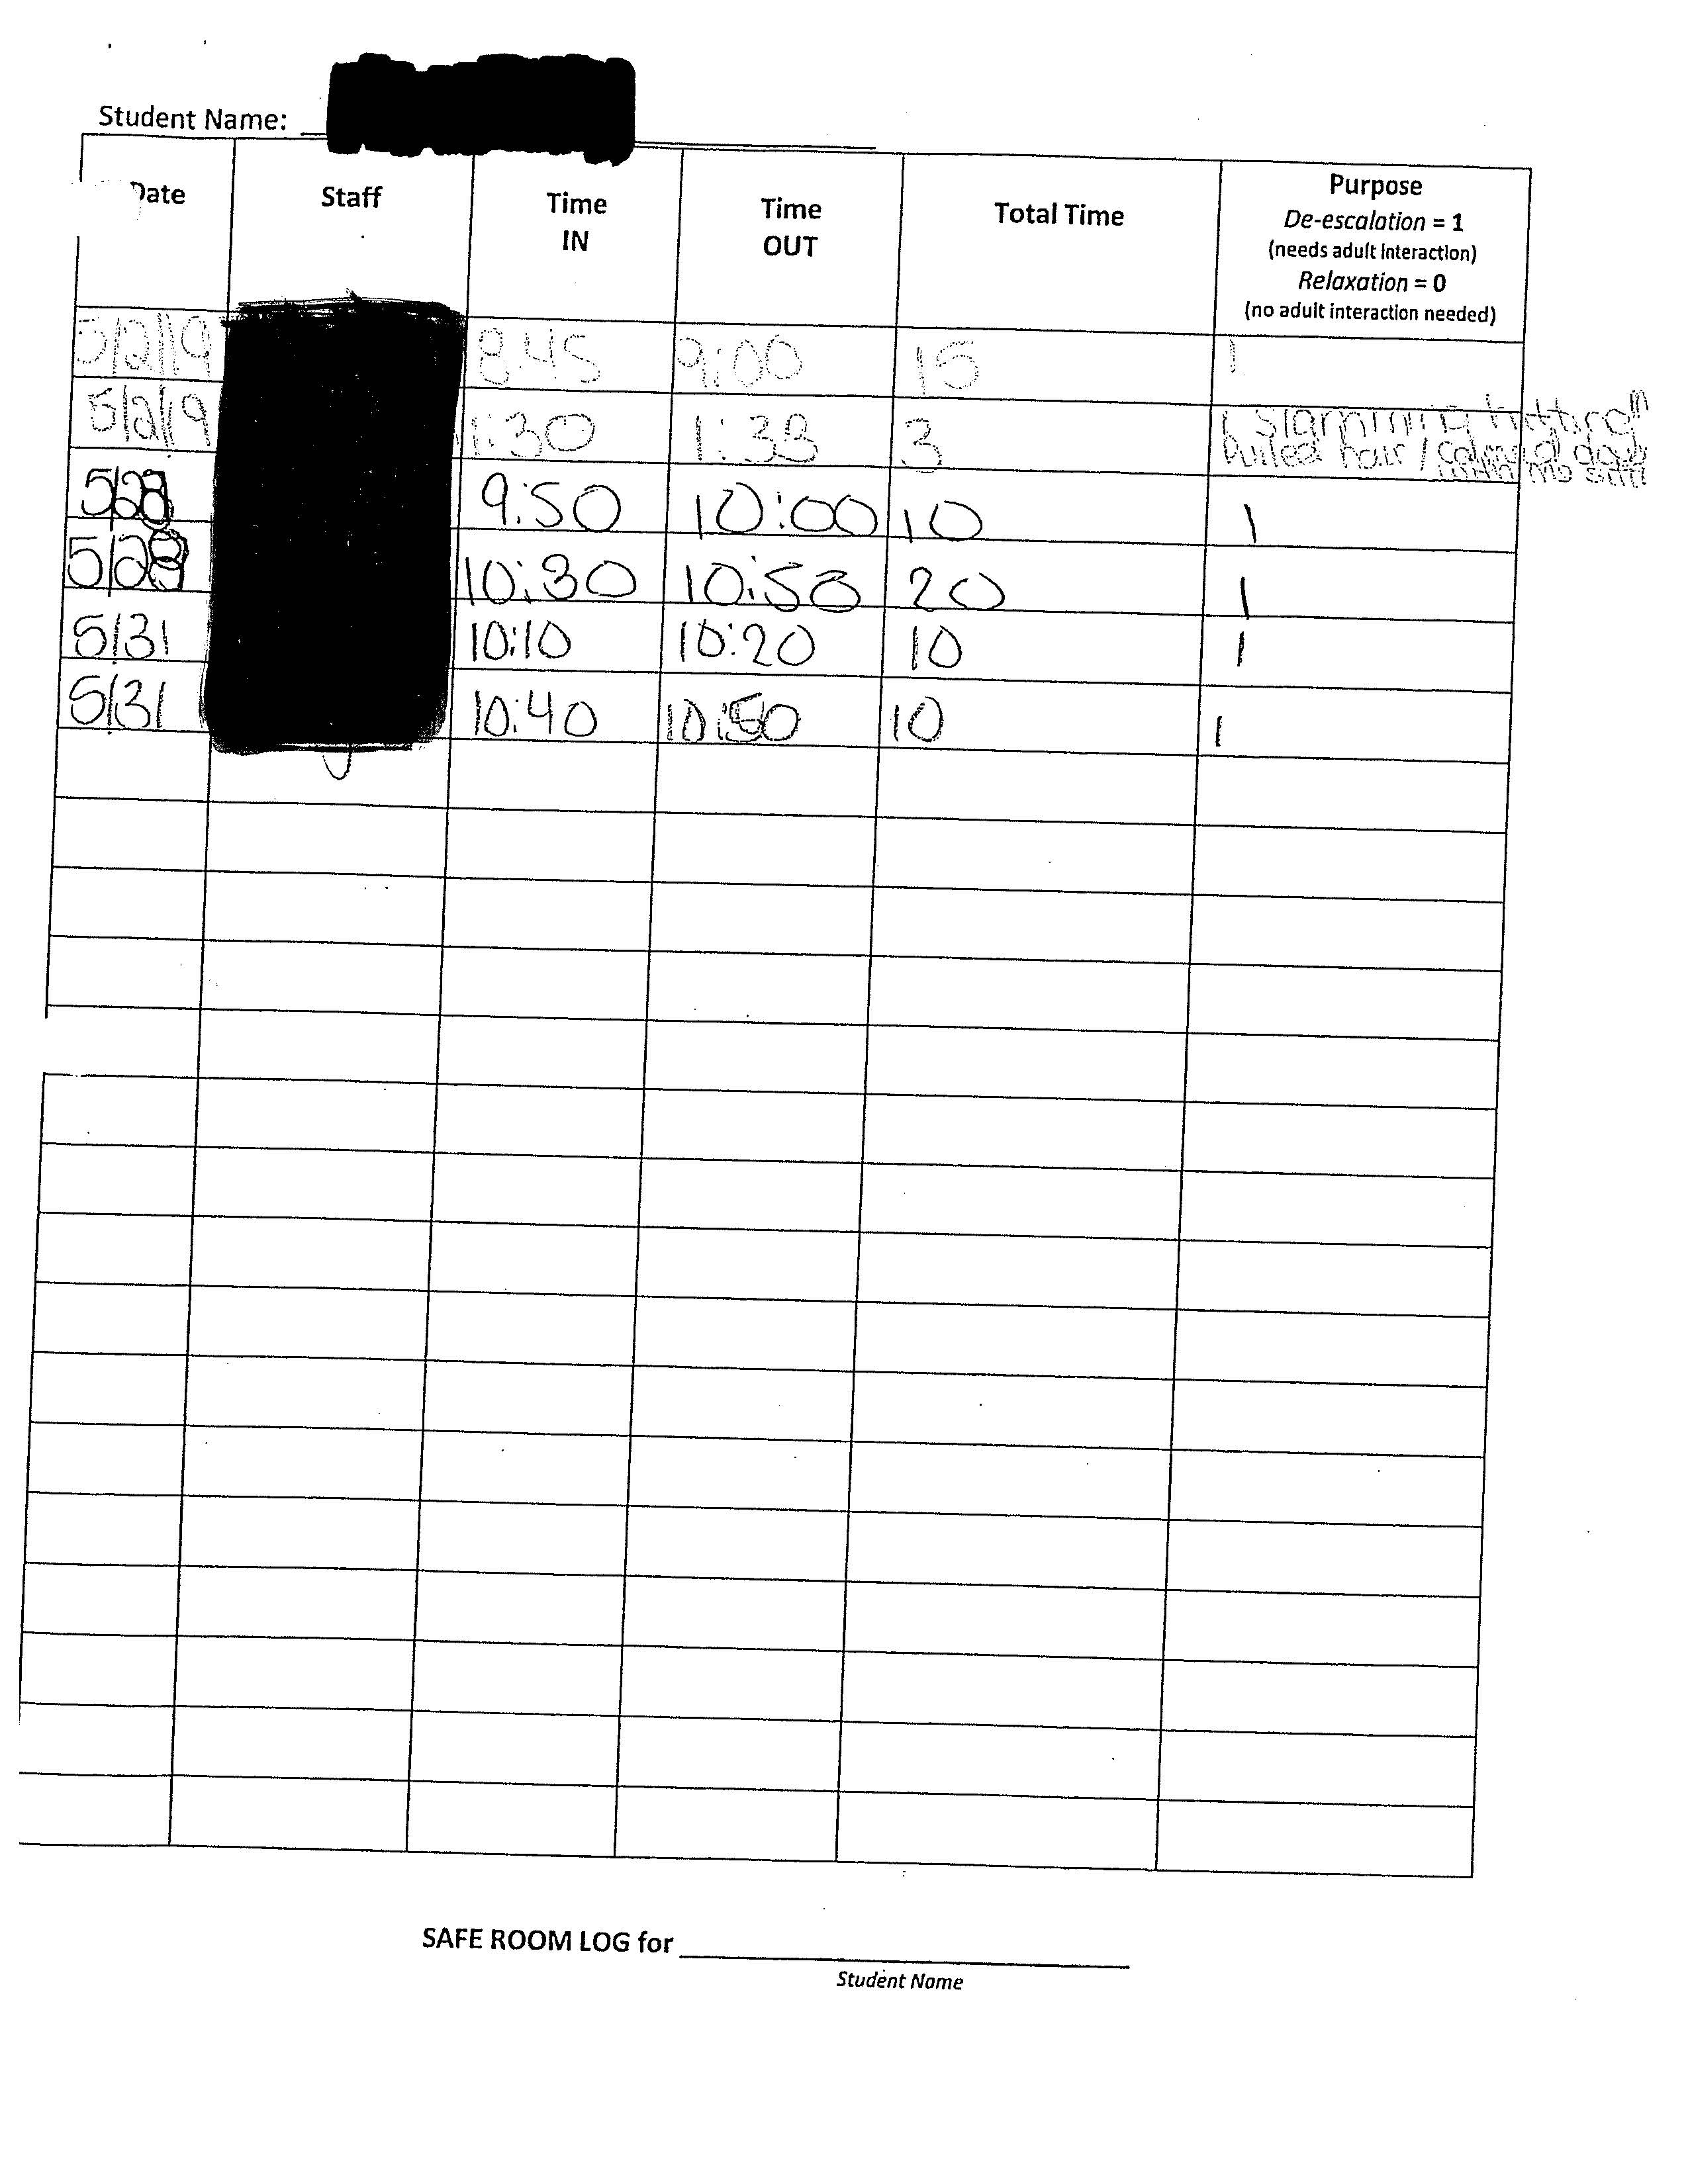 Student Name:
Date Staff Time IN Time OUT Total Time Purpose
De-escalation = 1
(needs adult interaction)
Relaxation = 0
(no adult interaction needed)
5/2/19 8:45 9:00 15 1
5/2/19 1:30 1:33 3 1 slamming hitting
pulled hair / calmed down
5/28 9:50 10:00 10 1
5/28 10:30 10:50 20 1
5/31 10:10 10:20 10 1
5/31 10:40 10:50 10 1
SAFE ROOM LOG for
Student Name